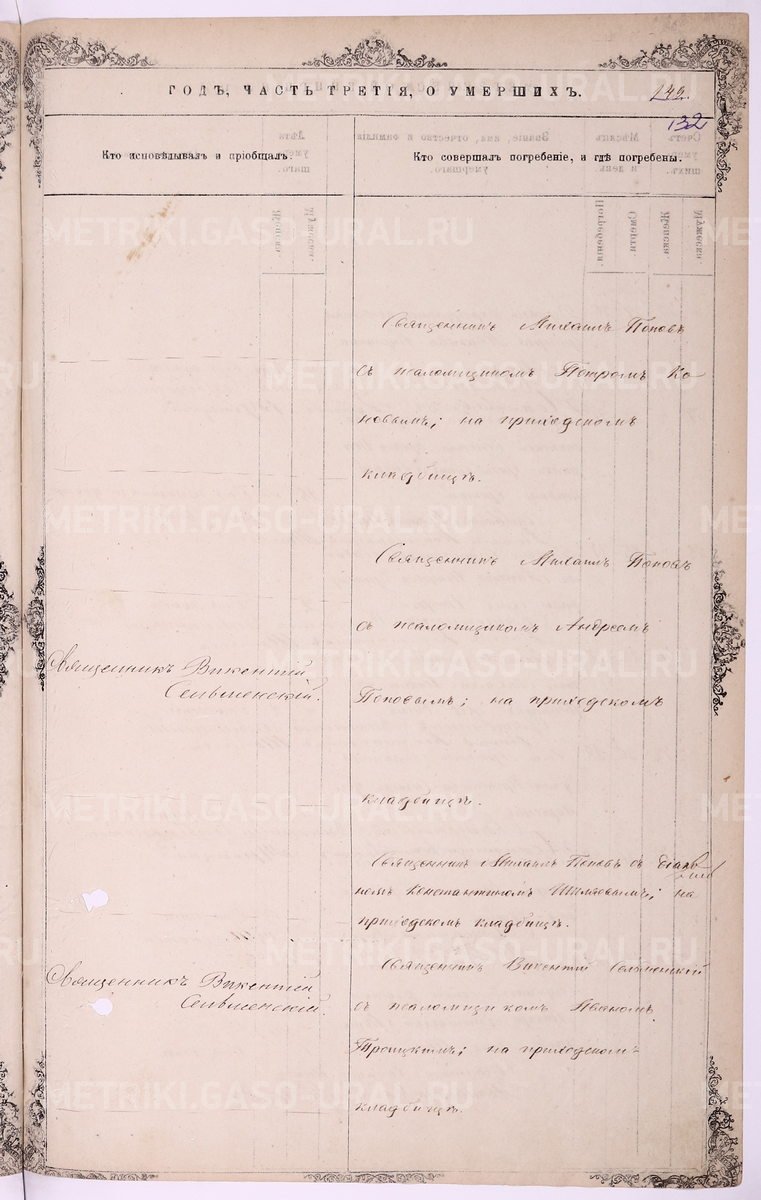 ГОДЪ, ЧАСТЬ ТРЕТІЯ, О УМЕРШИХЪ.
132
Кто исповѣдывалъ и пріобщалъ.
Кто совершалъ погребеніе, и гдѣ погребены.
Священникъ Михаилъ Поповъ
съ псаломщикомъ Петромъ Ко
новымъ; на приходскомъ
кладбищѣ.
Священникъ Михаилъ Поповъ
съ псаломщикомъ Андреемъ
Поповымъ; на приходскомъ
кладбищѣ.
Священникъ Викентій
Сельменскій.
Священникъ Михаилъ Поповъ съ діако
номъ Константиномъ на
приходскомъ кладбищѣ.
Священникъ Викентій Сельменскій
съ псаломщикомъ Иваномъ
Троицкимъ; на приходскомъ
кладбищѣ.
Священникъ Викентій
Сельменскій.
METRIKI.GASO-URAL.RU